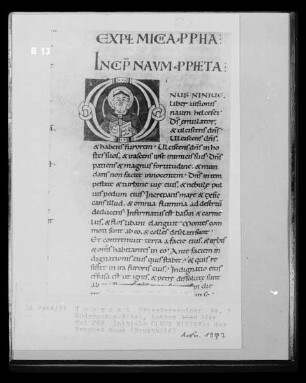 B 13
EXPL MICEA·PPHA
INCIP NAUM·PPHETA
NUS NINIUE.
Liber uisionis
naum helcesei.
D̄s emulator,
& ulciscens dn̄s.
Ulciscens dn̄s,
& habens furorem. Ulciscens dn̄s in ho
stes suos, & irascens ipse inimicis suis. Dn̄s
patiens & magnus fortitudine, & mun
dans non faciet innocentem. Dn̄s in tem
pestate & turbine uiae eius, & nebulae pul
uis pedum eius. Increpans mare & exsic
cans illud, & omnia flumina ad desertū
deducens. Infirmatus est basan & carme
lus, & flos libani elanguit. Montes com
moti sunt ab eo, & colles desolati sunt.
Et contremuit terra a facie eius, & orbis
& omnes habitantes in eo. Ante faciem in
dignationis eius quis stabit, & quis re
sistet in ira furoris eius? Indignatio eius
effusa est ut ignis, & petrae dissolutae sunt
ab
Priesterseminar
Fol
Initiale
Prophet Naum (Brustbild)